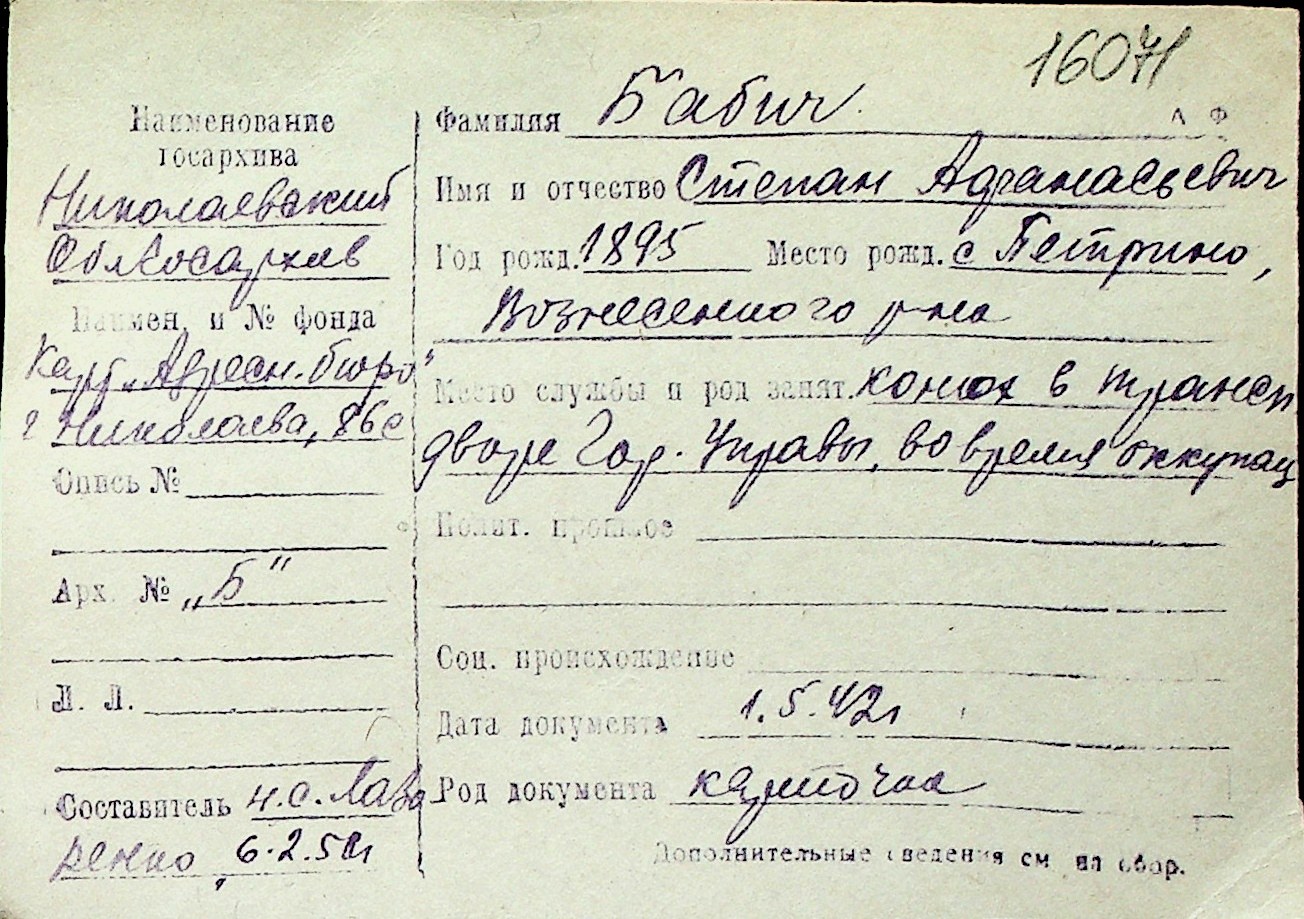 16071
Наименование
госархива
Николаевский
Облгосархив
Наимен. и № фонда
Карт „Адресн. бюро"
г Николаева, 86с
Опись №
Арх. № „Б"
Л. Л.
Составитель н.с. Лав
ренко 6.2.50г
Фамилия Бабич
А Ф
Имя и отчество Степан Афанасьевич
Год рожд. 1895 Место рожд. с Петрино,
Вознесенского р-на
Место службы и род занят. конюх в трансп
дворе Гор. Управы, во время оккупац
Полит. прошлое
Соц. происхождение
Дата документа 1.5.42г
Род документа карточка
Дополнительные сведения см на обор.